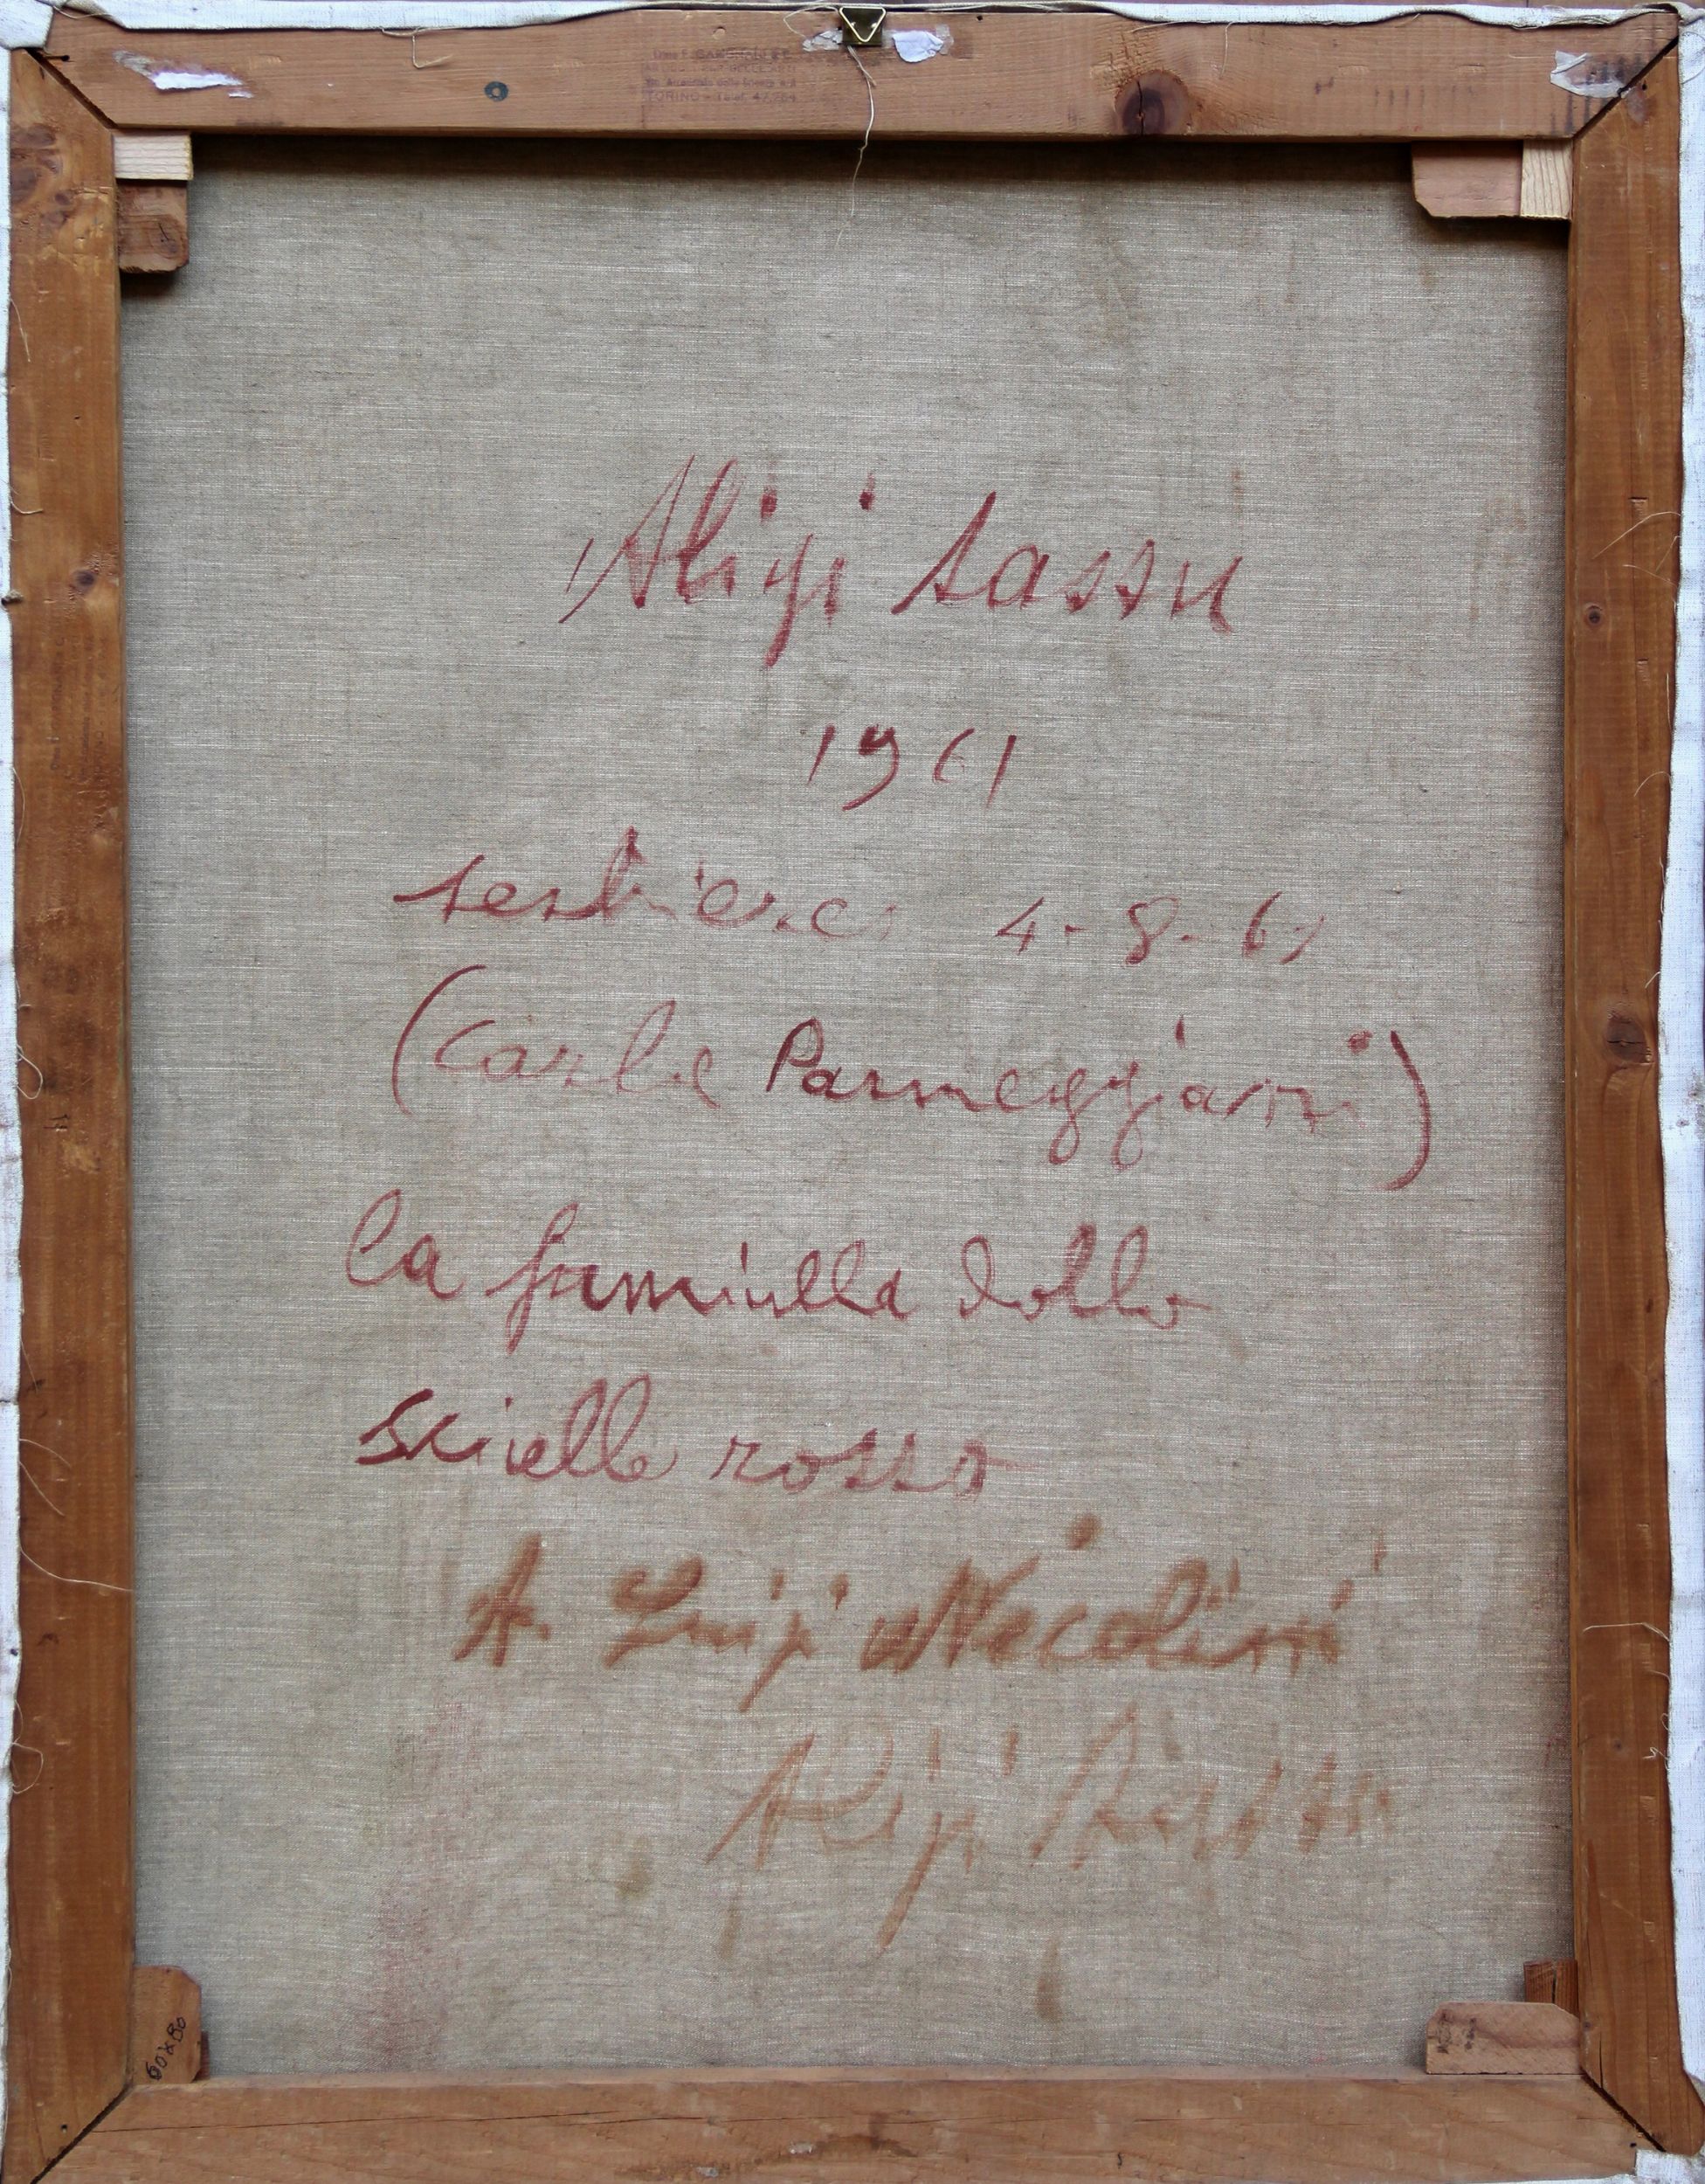 TORINO
Aligi Sassu
1961
sestriere 4-8-61
(Carla Parmeggiani)
la fanciulla dallo
scialle rosso
A. Luigi Nicolini
Aligi Sassu
60x80